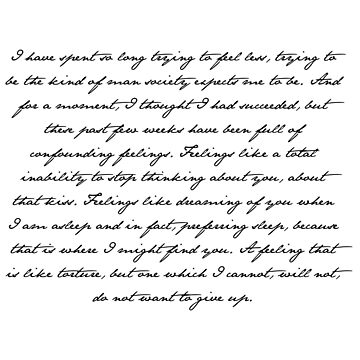 I have spent so long trying to feel less, trying to
be the kind of man society expects me to be. And
for a moment, I thought I had succeeded, but
these past few weeks have been full of
confounding feelings. Feelings like a total
inability to stop thinking about you, about
that kiss. Feelings like dreaming of you when
I am asleep and in fact, preferring sleep, because
that is where I might find you. A feeling that
is like torture, but one which I cannot, will not,
do not want to give up.